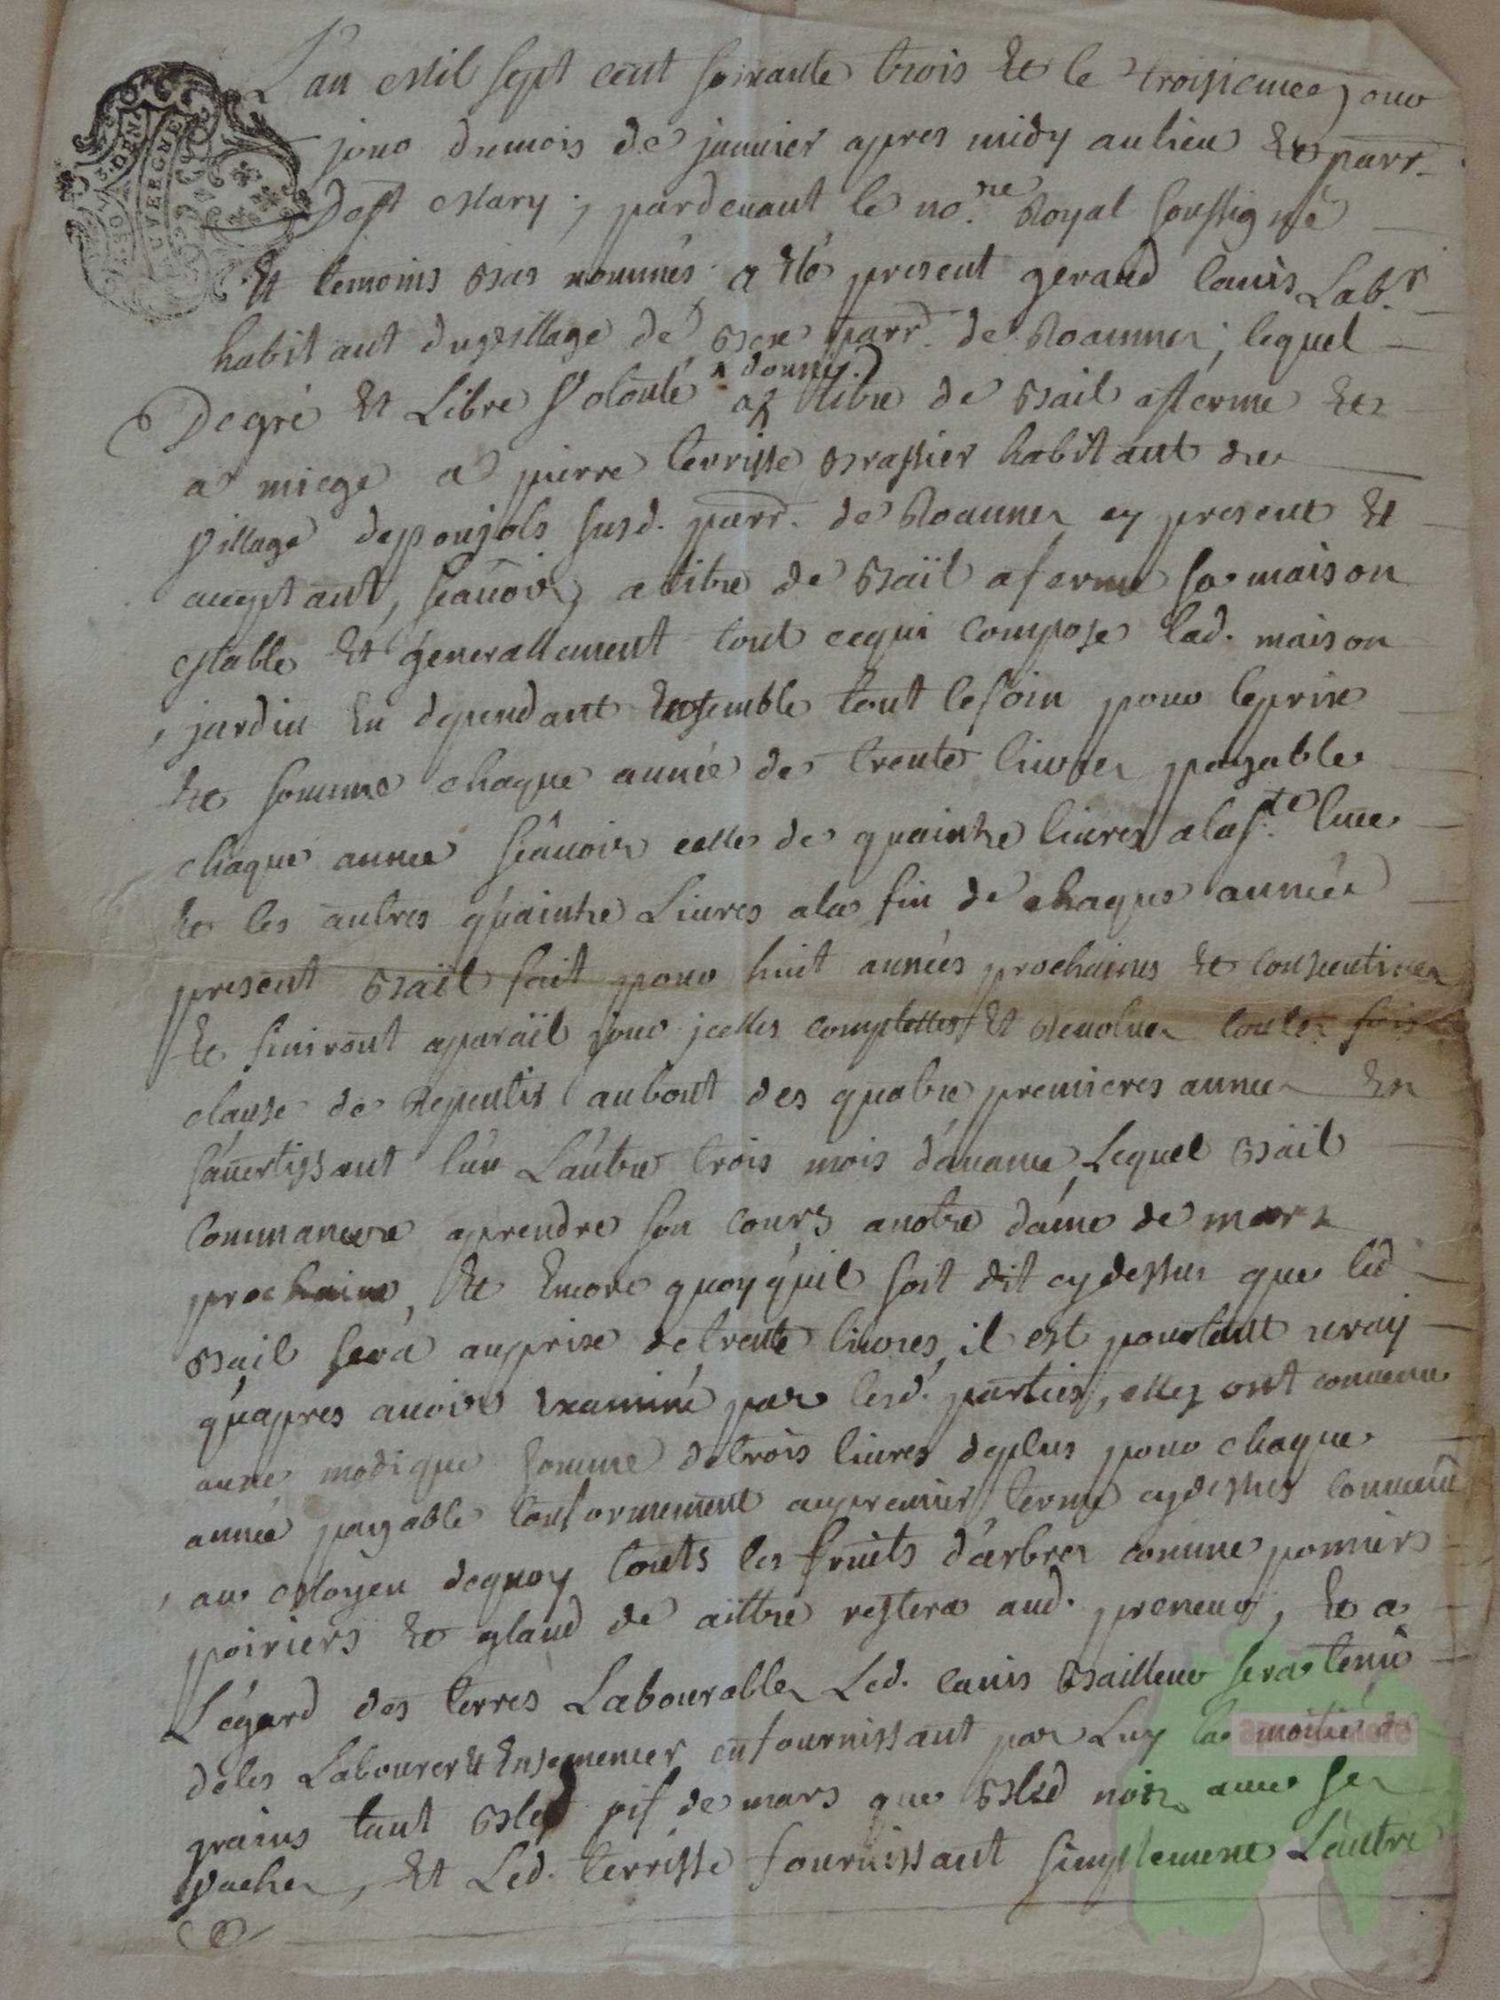 L'an Mil sept cent soixante trois Et le troisieme jour
jour du mois de janvier apres midy au lieu Et parr.
De st Mary, pardevant le no.re Royal soussigné
Et temoins Bas nommés a Eté present geraud lauis Lab.r
habitant du village de parr. de Roannes, lequel
De gré Et Libre Volonté a donné
a titre de Bail aferme Et
a miege a pierre terrisse Brassier habitant du
Village de poujols susd. parr. de Roannes cy present Et
aceptant, scâuoir, a titre de Baïl a ferme sa maison
estable Et generallement tout cequi compose lad. maison
jardin En dependant Ensemble tout le foin pour leprix
Et somme chaque année de trente livres payable
chaque année scâuoir celle de quainze livres a la s.te luce
Et les autres quainze Livres a la fin de chaque année
present Baïl fait pour huit années prochaines Et consecutives
Et finiront aparaïl jour jcelles complettes Et Revolues toutes fois
clause de Repentir au bout des quatre premieres années En
s'avertissant l'un L'autre trois mois d'avance, Lequel Bail
Commancera aprendre son cours a notre dame de mars
prochaine, Et Encore quoyqu'il soit dit cy dessus que led
Bail sera auprix de trente livres, il est pourtant vray
qu'apres avoir Examiné par lesd. parties, elles ont convenu
aune modique somme de trois livres deplus pour chaque
année payable Conformement aupremier terme cydessus convenu
au Moyen dequoy touts les fruits d'arbres comme pomiers
poiriers Et gland de aittre restera aud. preneur, Et a
L'égard des terres Labourables Led. lauis Bailleur sera tenu
de les Labourer Et Ensemencer en fournissant par Luy la moitié de
grains tant Bled pif de mars que Bled noir avec ses
Vaches, Et Led. terrisse fournissant simplement L'autre